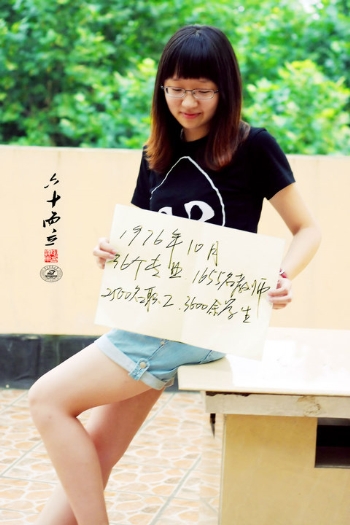 六十而立
1976年10月
36个专业 1655名教师
2500名职工.3600余学生